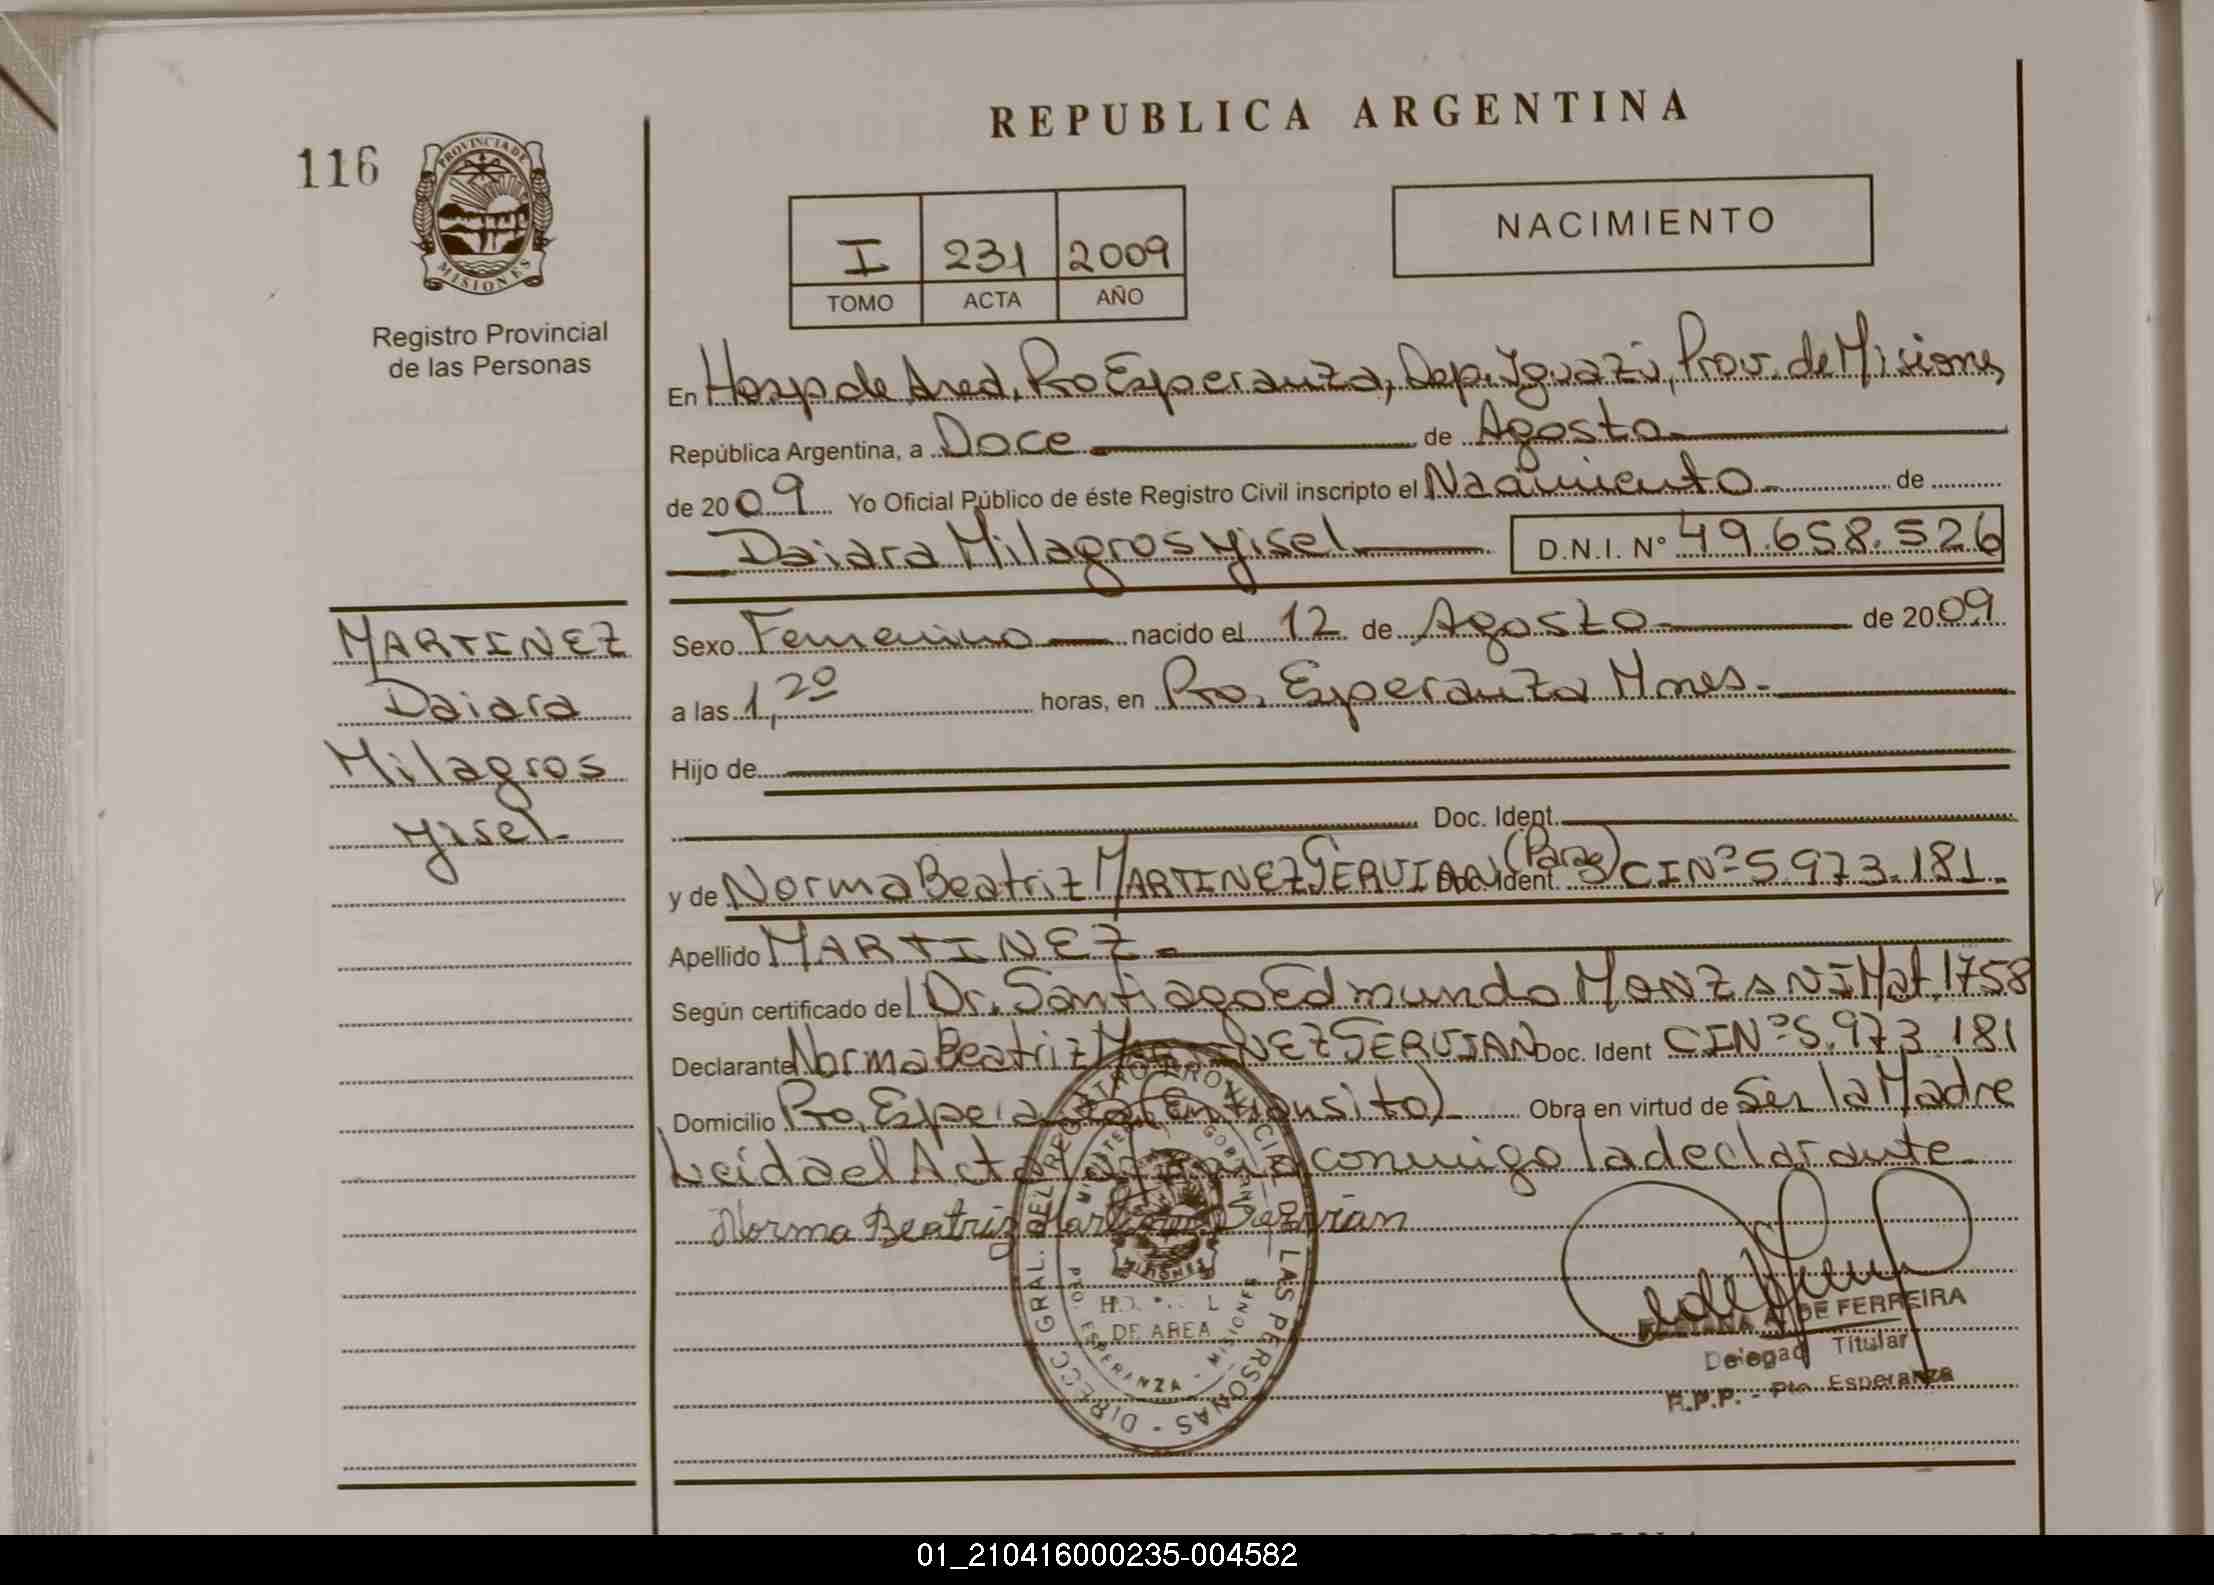 REPUBLICA ARGENTINA
116
PROVINCIA DE
MISIONES
Registro Provincial
de las Personas
I 231 2009
TOMO ACTA AÑO
NACIMIENTO
En Hosp de Area, Pto Esperanza, Dep. Iguazú, Prov. de Misiones
República Argentina, a Doce de Agosto
de 2009 Yo Oficial Público de éste Registro Civil inscripto el Nacimiento de
Daiara Milagros Yisel D.N.I. Nº 49.658.526
MARTINEZ
Daiara
Milagros
Yisel
Sexo Femenino nacido el 12 de Agosto de 2009
a las 1,20 horas, en Pto. Esperanza Mnes.
Hijo de
Doc. Ident.
y de Norma Beatriz MARTINEZ SERVIAN (Parag) Doc. Ident. CI Nº 5.973.181
Apellido MARTINEZ
Según certificado del Dr. Santiago Edmundo MONZANI Mat. 1758
Declarante Norma Beatriz MARTINEZ SERVIAN Doc. Ident CI Nº 5.973.181
Domicilio Pto. Esperanza (En transito) Obra en virtud de Ser la Madre
Leida el Acta la firma conmigo la declarante
Norma Beatriz Martinez Servian
DIRECC. GRAL. DEL REGISTRO PROVINCIAL DE LAS PERSONAS
MISIONES
DE AREA
PTO. ESPERANZA - MISIONES
A. DE FERREIRA
Delegada Titular
R.P.P. - Pto. Esperanza
01_210416000235-004582